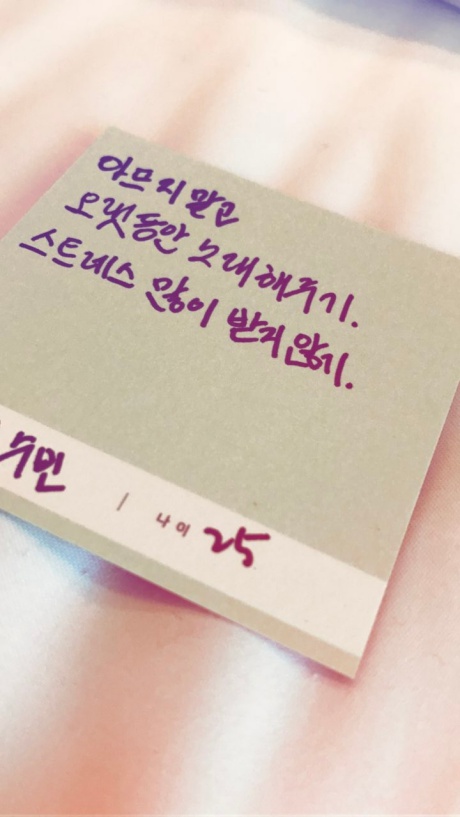 아프지 말고
오랫동안 노래해주기.
스트레스 많이 받지 않기.
수빈 | 나이 25